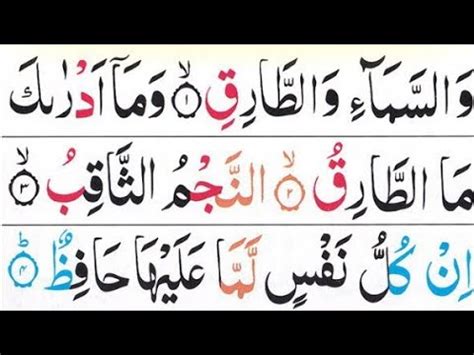 وَالسَّمَآءِ وَالطَّارِقِ ۙ﴿۱﴾ وَمَاۤ اَدْرٰىكَ
مَا الطَّارِقُ ۙ﴿۲﴾ النَّجْمُ الثَّاقِبُ ۙ﴿۳﴾
اِنْ كُلُّ نَفْسٍ لَّمَّا عَلَيْهَا حَافِظٌ ؕ﴿۴﴾